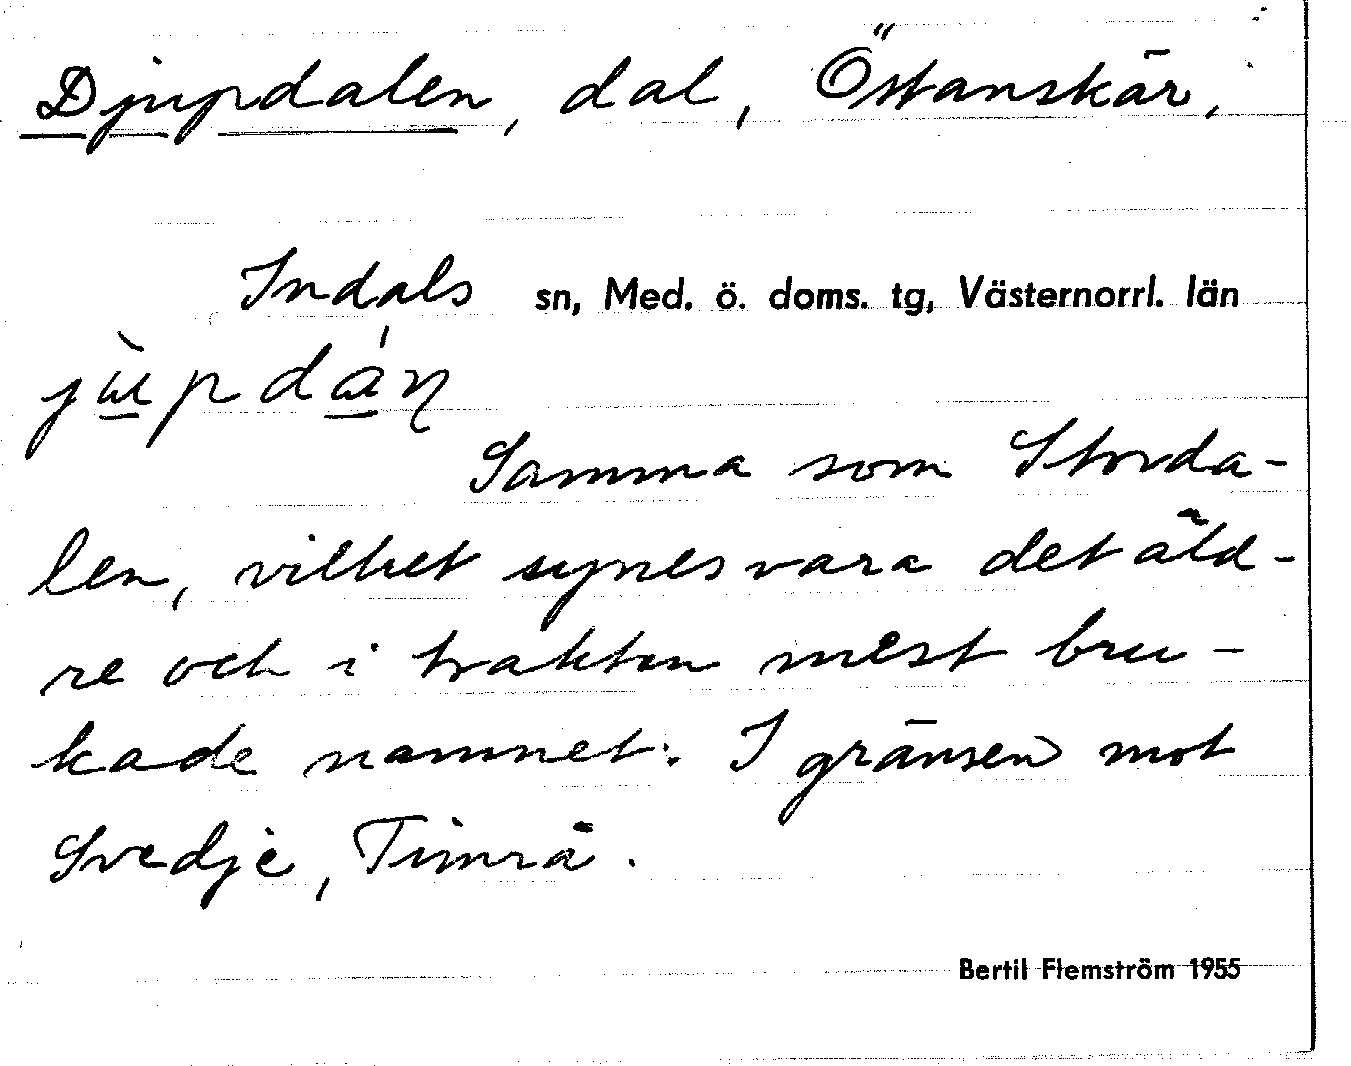 Djupdalen, dal, Östanskär,
Indals sn, Med. ö. doms. tg, Västernorrl. län
jùpdán
Samma som Storda-
len, vilket synes vara det äld-
re och i trakten mest bru-
kade namnet. I gränsen mot
Svedje, Timrå.
Bertil Flemström 1955